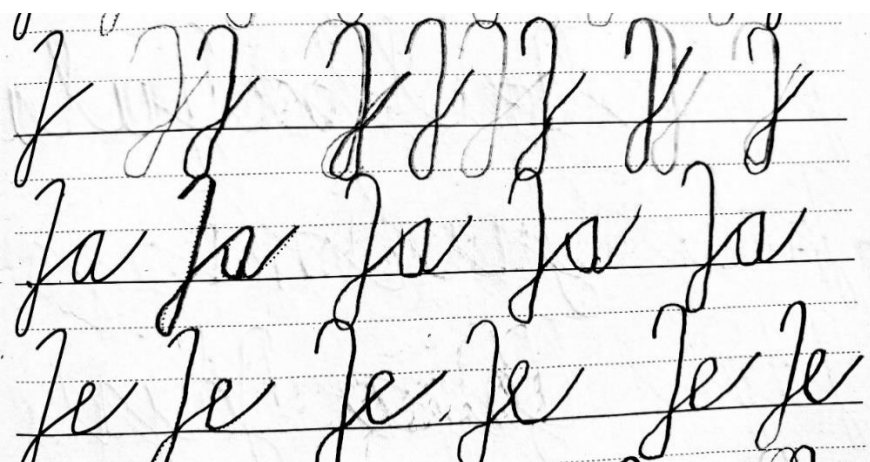 J J J J J J J
Ja Ja Ja Ja Ja
Je Je Je Je Je Je